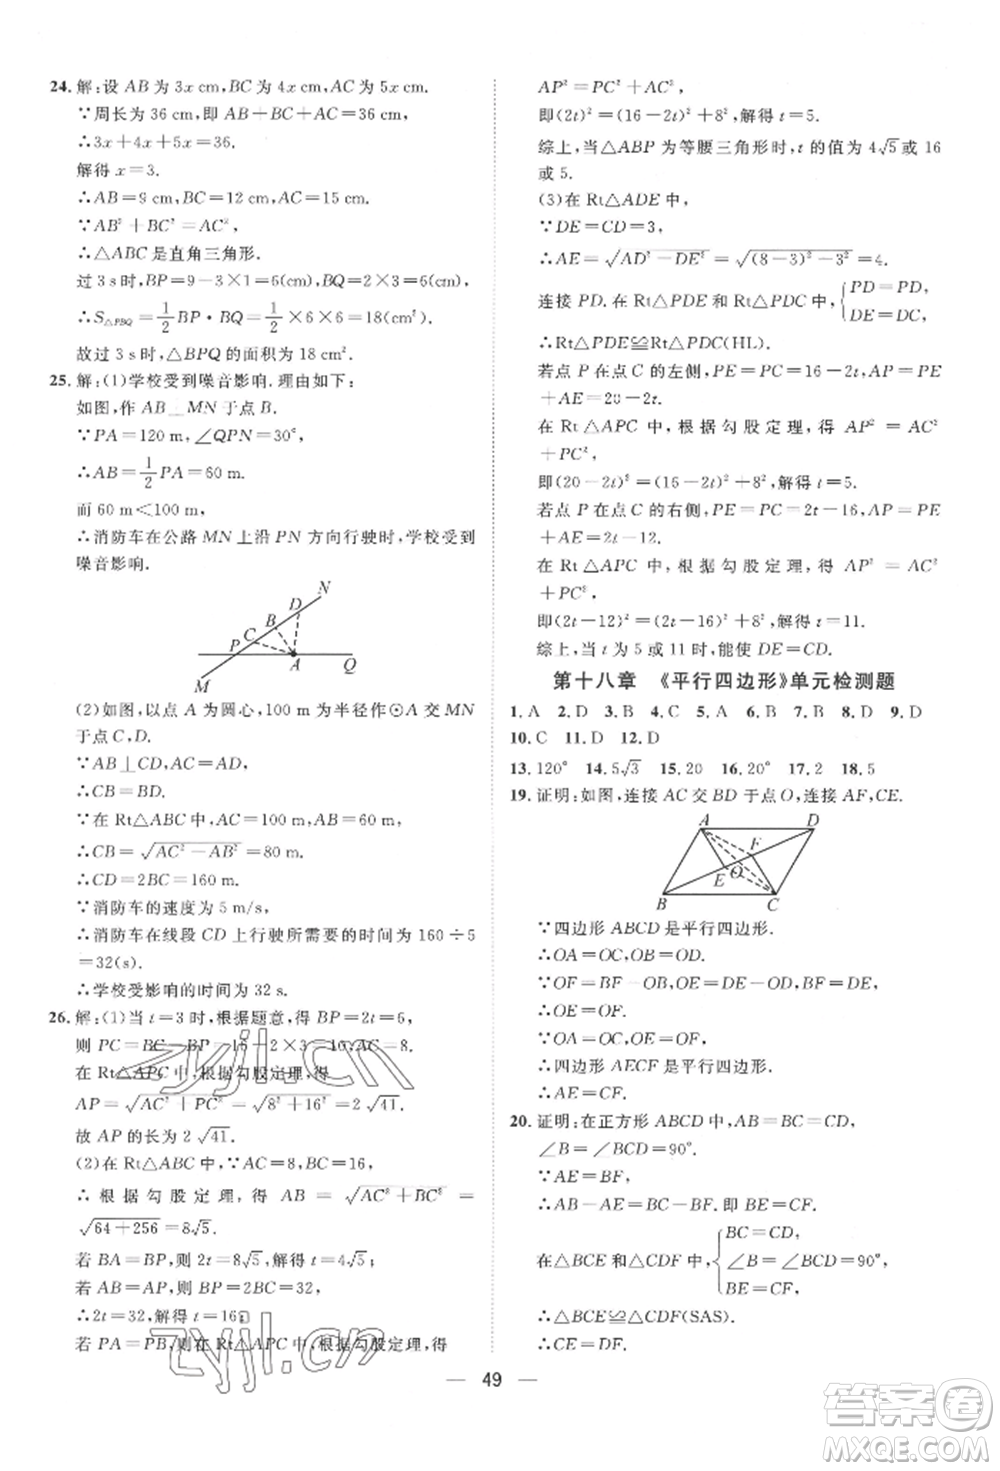 24. 解:设 AB 为 3x cm,BC 为 4x cm,AC 为 5x cm.
∵周长为 36 cm,即 AB+BC+AC=36 cm,
∴3x+4x+5x=36.
解得 x=3.
∴AB=9 cm,BC=12 cm,AC=15 cm.
∵AB²+BC²=AC²,
∴△ABC 是直角三角形.
过 3 s 时,BP=9-3×1=6(cm),BQ=2×3=6(cm),
∴S△PBQ=1/2 BP·BQ=1/2×6×6=18(cm²).
故过 3 s 时,△BPQ 的面积为 18 cm².
25. 解:(1)学校受到噪音影响.理由如下:
如图,作 AB⊥MN 于点 B.
∵PA=120 m,∠QPN=30°,
∴AB=1/2 PA=60 m.
而 60 m<100 m.
∴消防车在公路 MN 上沿 PN 方向行驶时,学校受到
噪音影响.
N
D
B
C
P
A
Q
M
(2)如图,以点 A 为圆心,100 m 为半径作⊙A 交 MN
于点 C,D.
∵AB⊥CD,
∴CB=BD.
∵在 Rt△ABC 中,AC=100 m,AB=60 m,
∴CB=√(AC²-AB²)=80 m.
∴CD=2BC=160 m.
∵消防车的速度为 5 m/s,
∴消防车在线段 CD 上行驶所需要的时间为 160÷5
=32(s).
∴学校受影响的时间为 32 s.
26. 解:(1)当 t=3 时,根据题意,得 BP=2t=6,
则 PC=BC-BP=16-2×3=10,AC=8.
在 Rt△APC 中,根据勾股定理,得
AP=√(AC²+PC²)=√(8²+10²)=2√41.
故 AP 的长为 2√41.
(2)在 Rt△ABC 中,∵AC=8,BC=16,
∴根据勾股定理,得 AB=√(AC²+BC²)=
√(64+256)=8√5.
若 BA=BP,则 2t=8√5,解得 t=4√5;
若 AB=AP,则 BP=2BC=32,
∴2t=32,解得 t=16;
若 PA=PB,则在 Rt△APC 中,根据勾股定理,得
AP²=PC²+AC²,
即(2t)²=(16-2t)²+8²,解得 t=5.
综上,当△ABP 为等腰三角形时,t 的值为 4√5或 16
或 5.
(3)在 Rt△ADE 中,
∵DE=CD=3,
∴AE=√(AD²-DE²)=√((8-3)²-3²)=4.
连接 PD.在 Rt△PDE 和 Rt△PDC 中,{PD=PD,
DE=DC,
∴Rt△PDE≌Rt△PDC(HL).
若点 P 在点 C 的左侧,PE=PC=16-2t,AP=PE
+AE=20-2t.
在 Rt△APC 中,根据勾股定理,得 AP²=AC²
+PC²,
即(20-2t)²=(16-2t)²+8²,解得 t=5.
若点 P 在点 C 的右侧,PE=PC=2t-16,AP=PE
+AE=2t-12.
在 Rt△APC 中,根据勾股定理,得 AP²=AC²
+PC²,
即(2t-12)²=(2t-16)²+8²,解得 t=11.
综上,当 t 为 5 或 11 时,能使 DE=CD.
第十八章 《平行四边形》单元检测题
1. A 2. D 3. B 4. C 5. A 6. D 7. B 8. D 9. D
10. C 11. D 12. D
13. 120° 14. 5√3 15. 20 16. 20 17. 2 18. 5
19. 证明:如图,连接 AC 交 BD 于点 O,连接 AF,CE.
A
D
F
O
E
B
C
∵四边形 ABCD 是平行四边形,
∴OA=OC,OB=OD.
∵OF=BF-OB,OE=DE-OD,BF=DE,
∴OE=OF.
∵OA=OC,OE=OF,
∴四边形 AECF 是平行四边形.
∴AE=CF.
20. 证明:在正方形 ABCD 中,AB=BC=CD,
∠B=∠BCD=90°.
∵AE=BF,
∴AB-AE=BC-BF.即 BE=CF.
在△BCE 和△CDF 中,{BC=CD,
∠B=∠BCD=90°,
BE=CF,
∴△BCE≌△CDF(SAS).
∴CE=DF.
49
zyjl.cn
zyjl.cn
答案圈
MXQE.COM